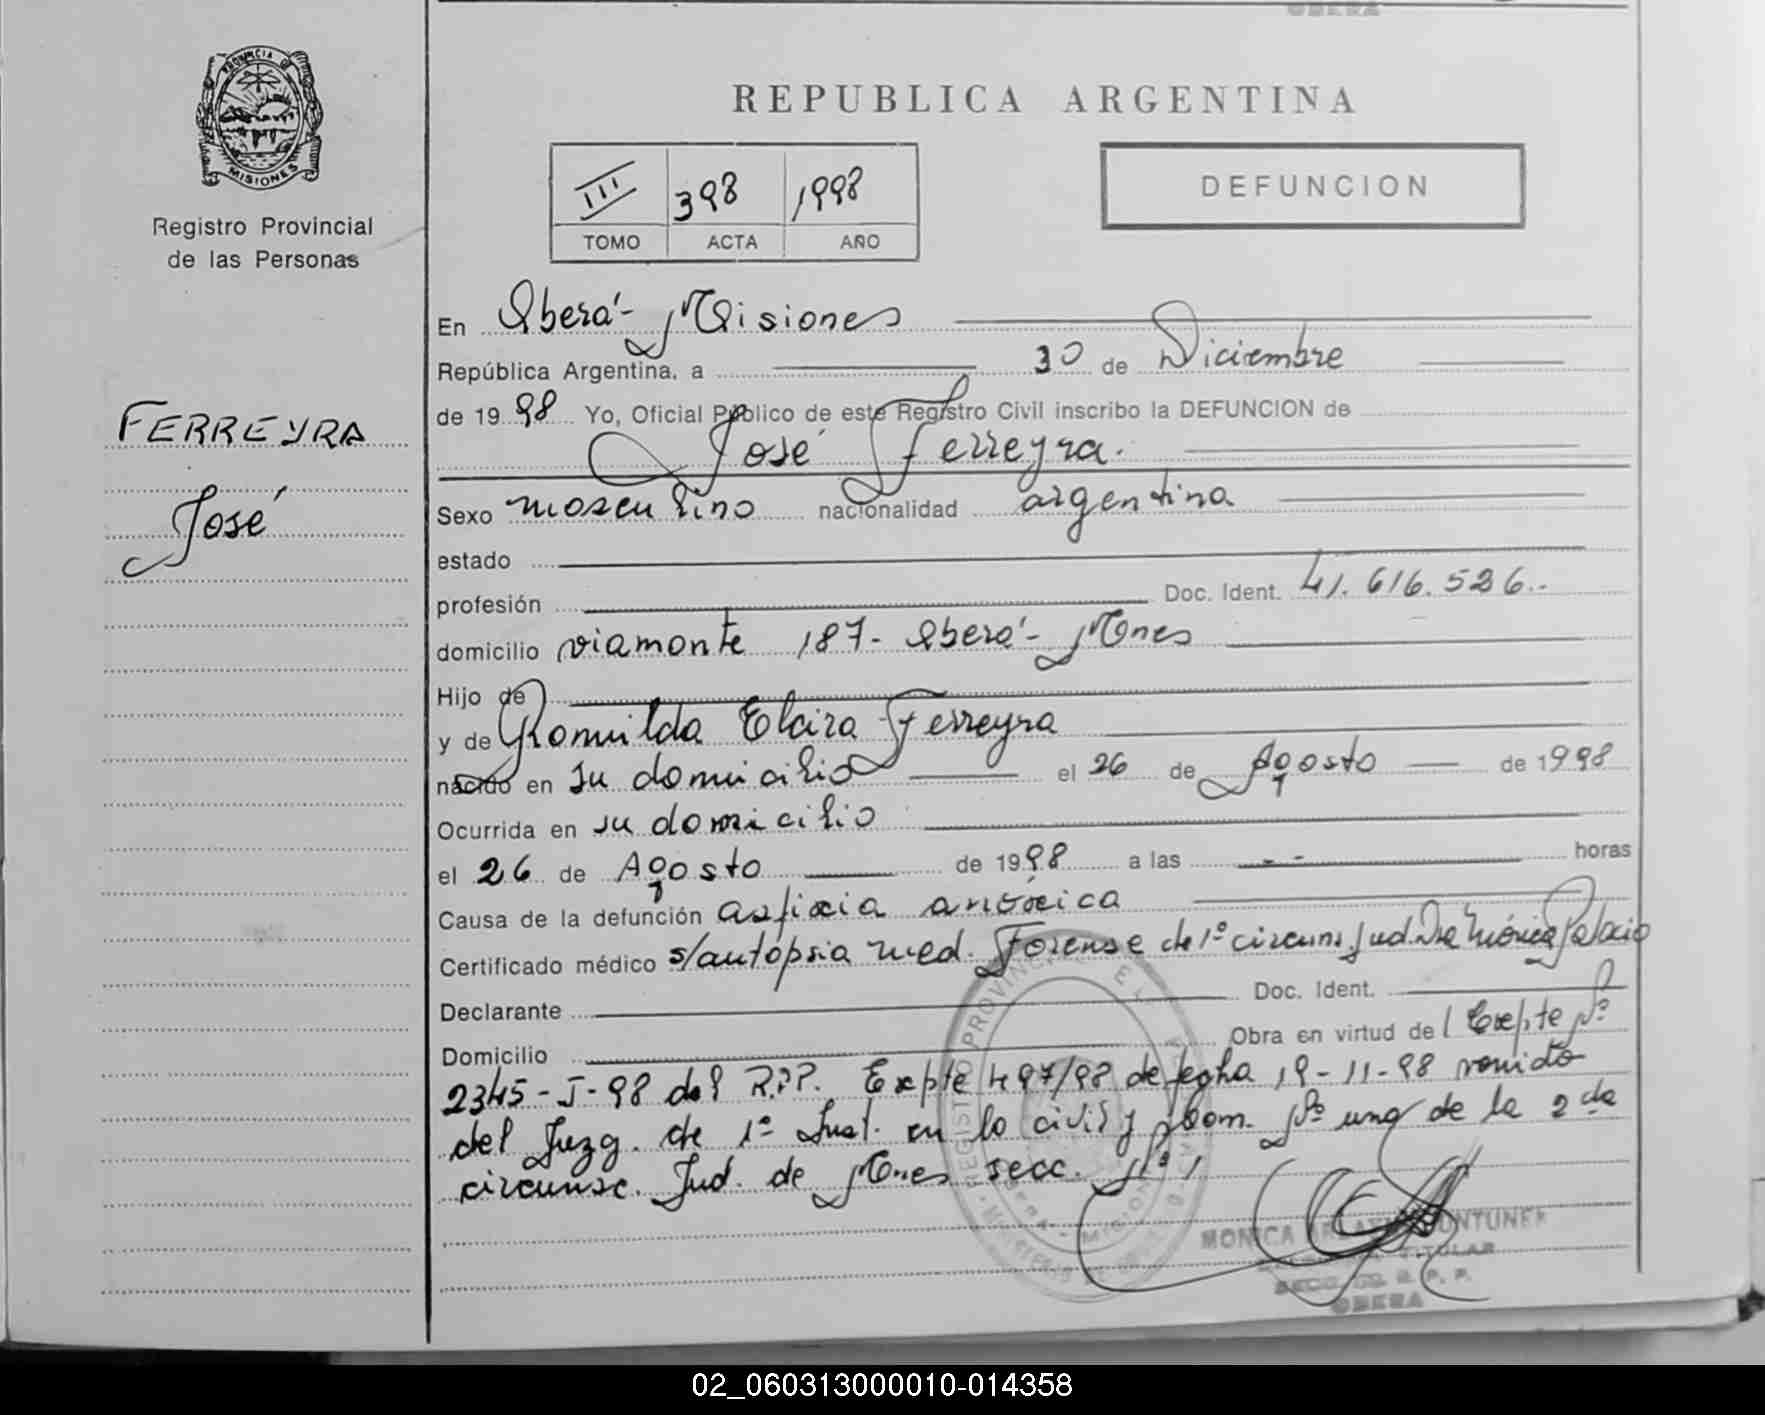 OBERA
PROVINCIA DE
MISIONES
Registro Provincial
de las Personas
FERREYRA
José
REPUBLICA ARGENTINA
III 398 1998
TOMO ACTA AÑO
DEFUNCION
En Oberá - Misiones
República Argentina, a 30 de Diciembre
de 1998 Yo, Oficial Público de este Registro Civil inscribo la DEFUNCION de
José Ferreyra.
Sexo masculino nacionalidad argentina
estado
profesión Doc. Ident. 41.616.526.-
domicilio viamonte 187- Oberá- Mnes
Hijo de
y de Romilda Elcira Ferreyra
nacido en su domicilio el 26 de Agosto de 1998
Ocurrida en su domicilio
el 26 de Agosto de 1998 a las -- horas
Causa de la defunción asfixia anóxica
Certificado médico s/autopsia med. Forense de 1º circuns. Jud. Dra Mónica Palacio
Declarante Doc. Ident.
Domicilio Obra en virtud del Expte Nº
2345-J-98 del R.P.P. Expte 497/98 de fecha 19-11-98 venido
del Juzg. de 1º Inst. en lo civil y com. Nº uno de la 2da
circunsc. Jud. de Mnes secc. Nº 1
REGISTRO PROVINCIAL DE
MISIONES
MONICA
TITULAR
R. P. P.
OBERA
02_060313000010-014358